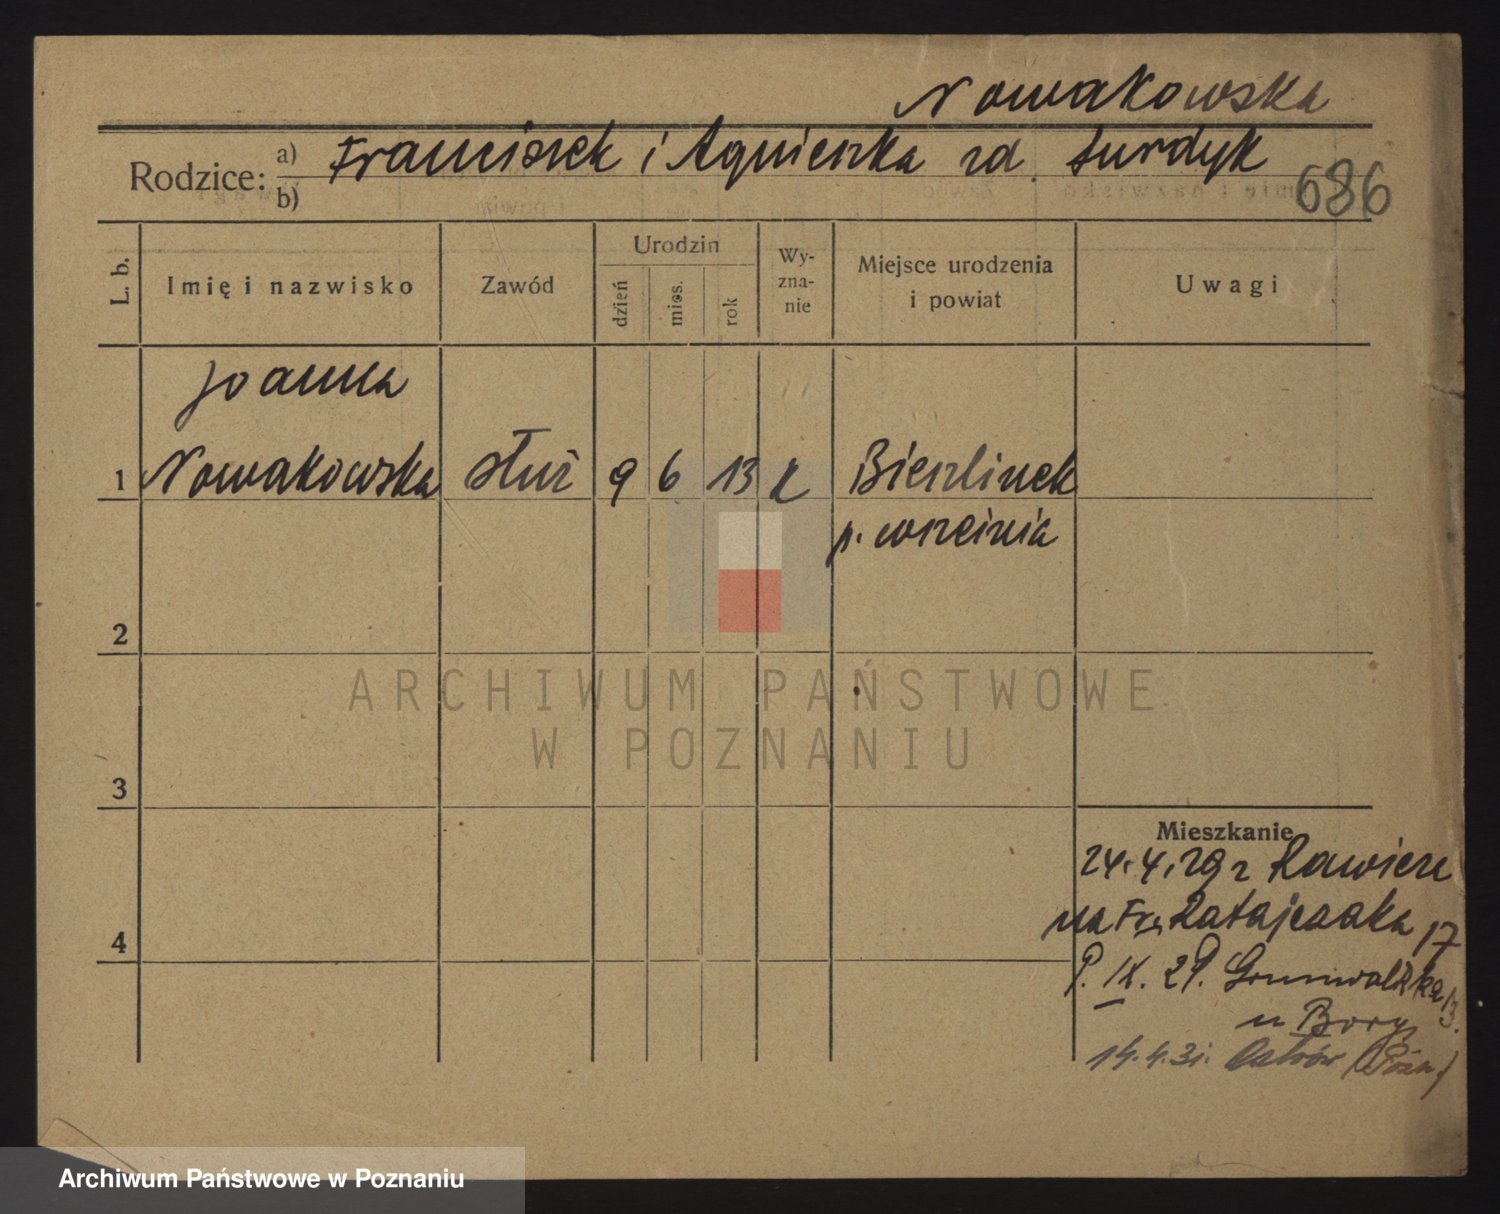 Nowakowska
Rodzice: a) Franciszek i Agnieszka zd. Surdyk
b)
686
L. b.
Imię i nazwisko
Zawód
Urodzin
dzień
mies.
rok
Wy-
zna-
nie
Miejsce urodzenia
i powiat
Uwagi
Joanna
1 Nowakowska służ 9 6 13 k Bierzlinek
p. września
2
ARCHIWUM PAŃSTWOWE
W POZNANIU
3
Mieszkanie
24.4.29 z Rawicza
na Fr. Ratajczaka 17
4
9. IX. 29. Grunwaldzka 13.
u Bory
14.4.31. (Pozn.)
Archiwum Państwowe w Poznaniu